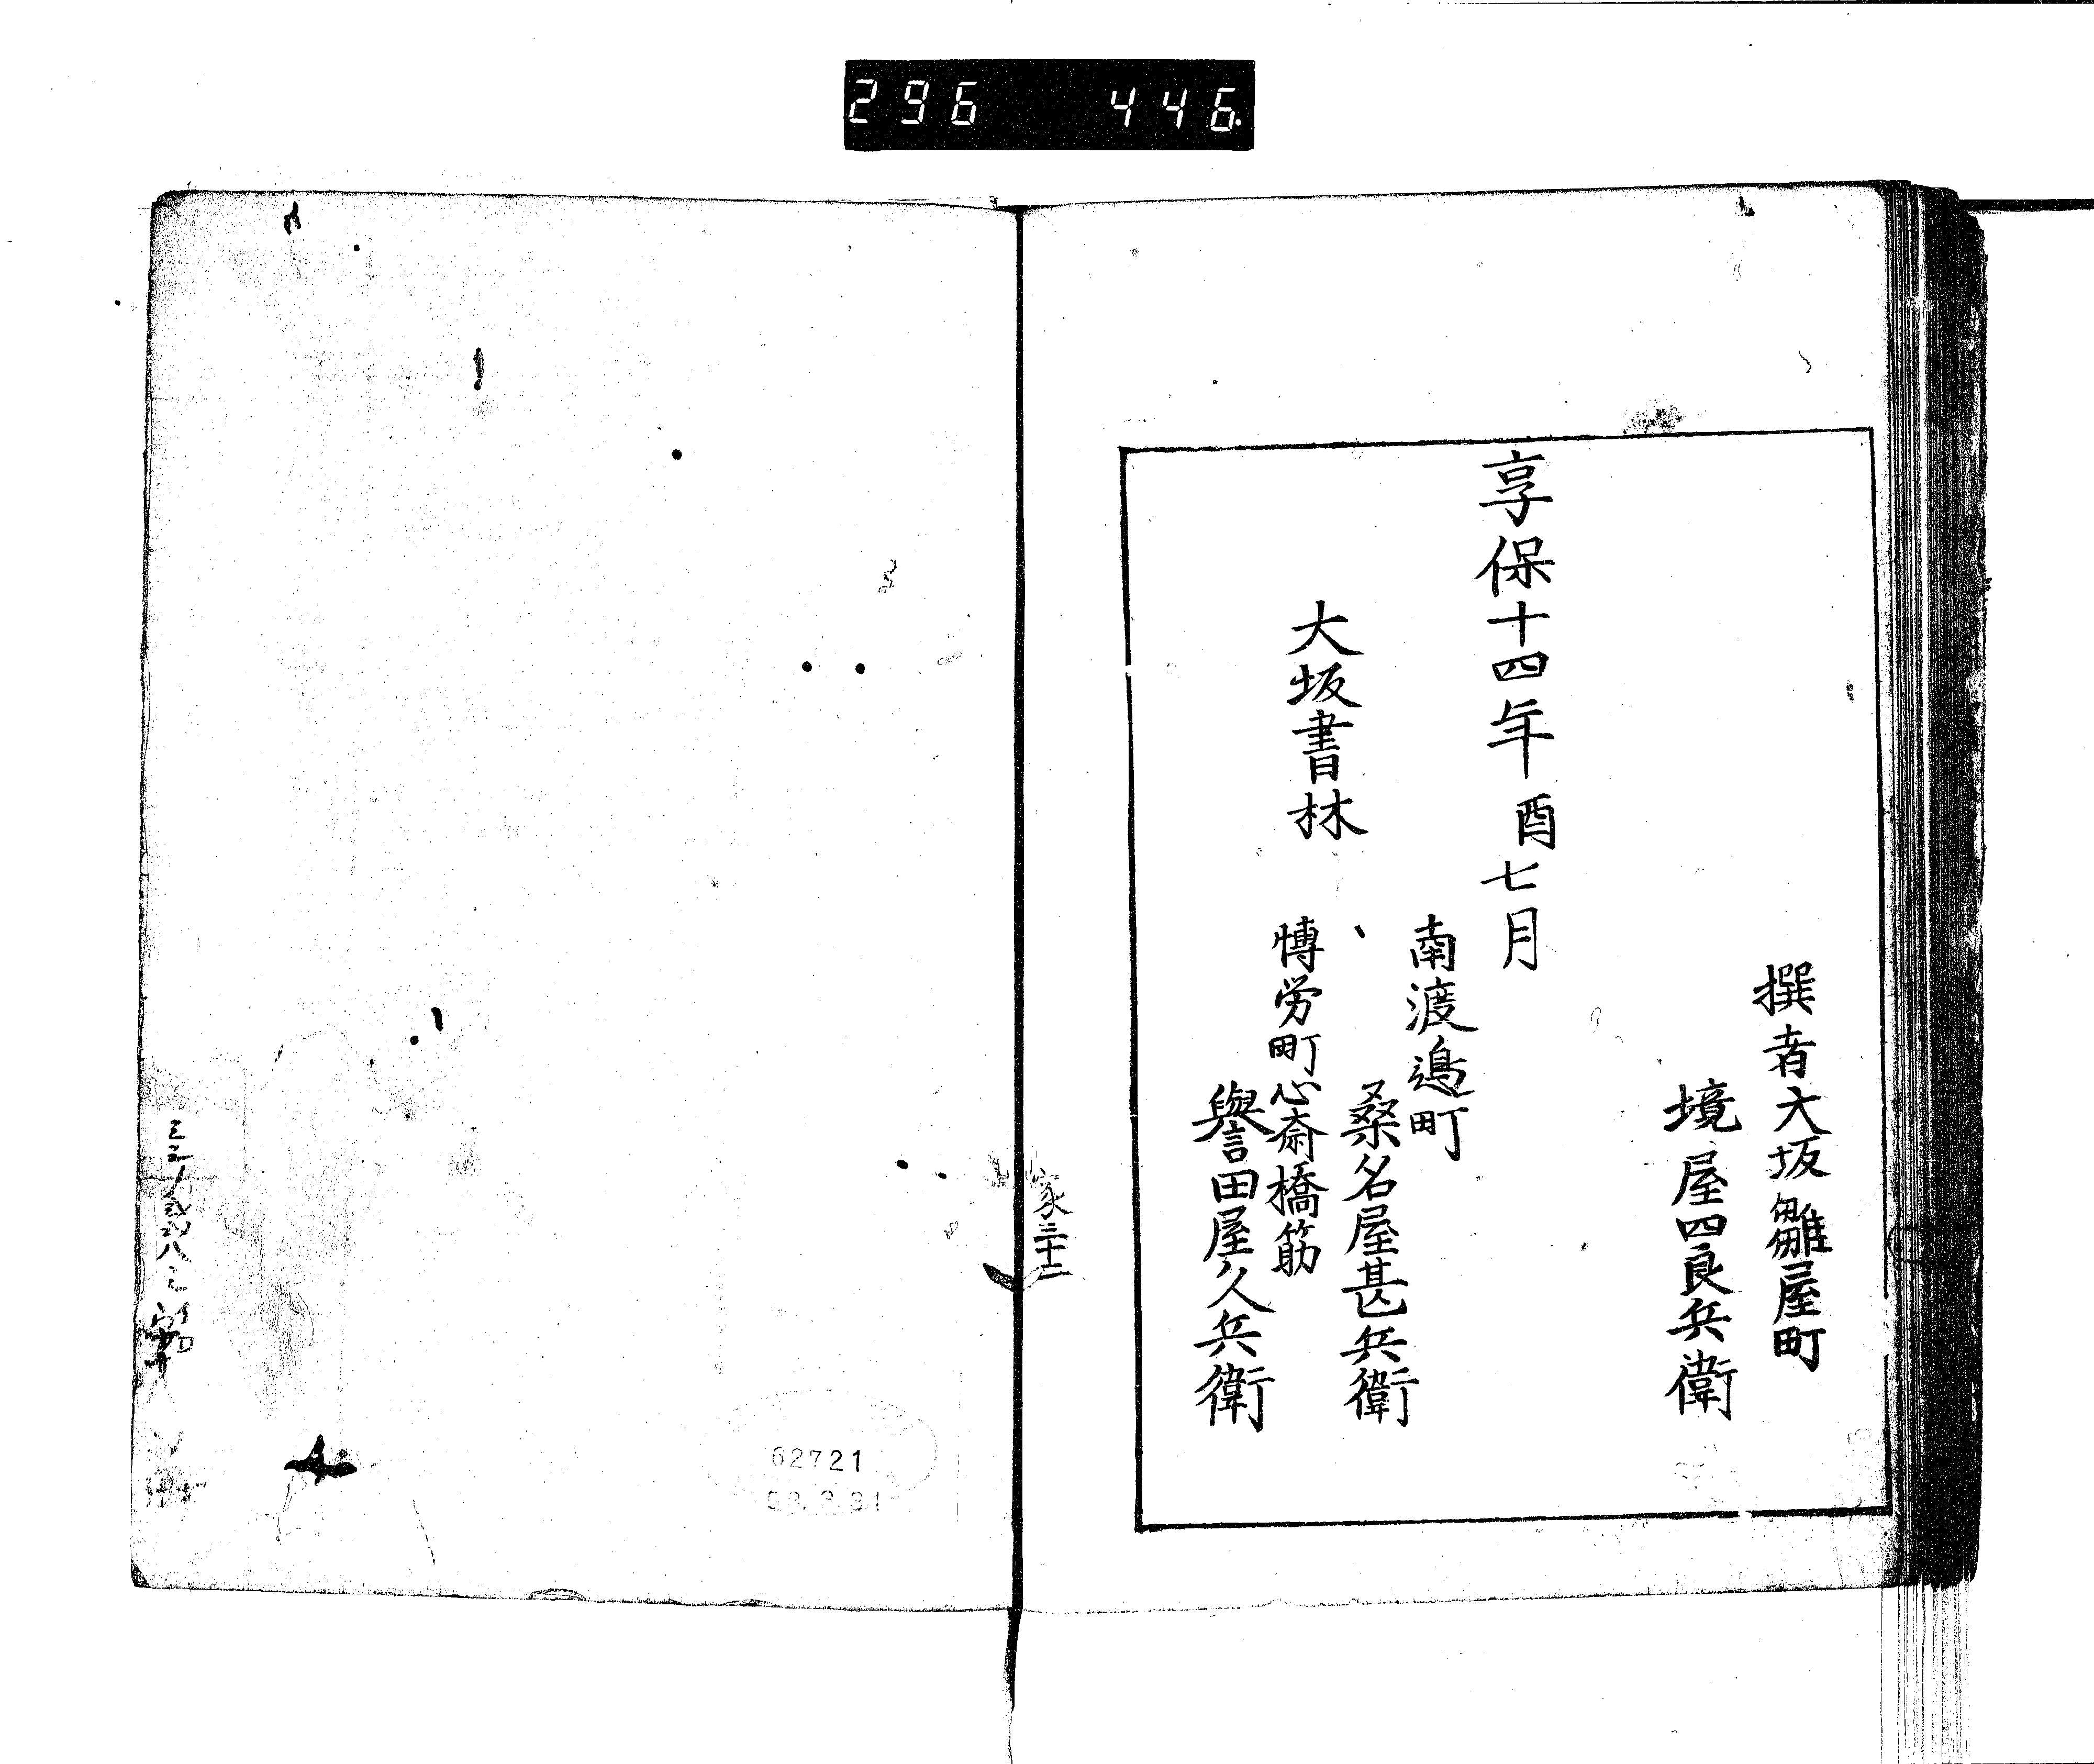 296 446
撰者大坂雛屋町
境屋四良兵衛
享保十四年酉七月
南渡邉町
桑名屋甚兵衛
大坂書林
博労町心斎橋筋
譽田屋久兵衛
家三十二
62721